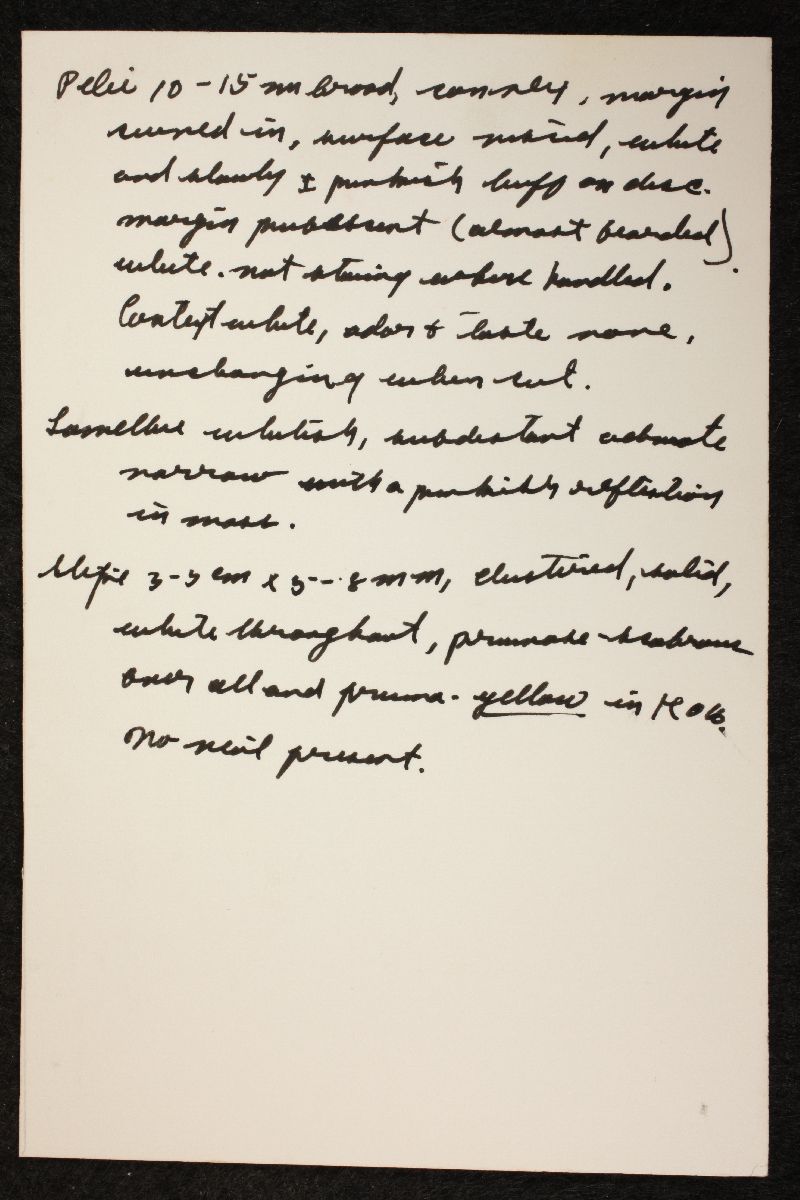 Pelie 10-15 mm broad, convex, margin
curved in, surface viscid, white
and slowly ± pinkish buff on disc.
margin pubescent (almost bearded).
white. not staining where handled.
Context white, odor & taste none,
unchanging when cut.
Lamellae whitish, subdistant adnate
narrow with a pinkish reflection
in mass.
Stipe 3-5 cm x 5-8 mm, clustered, solid,
white throughout, pruinose-scabrous
over all and pruina- yellow in KOH.
No veil present.